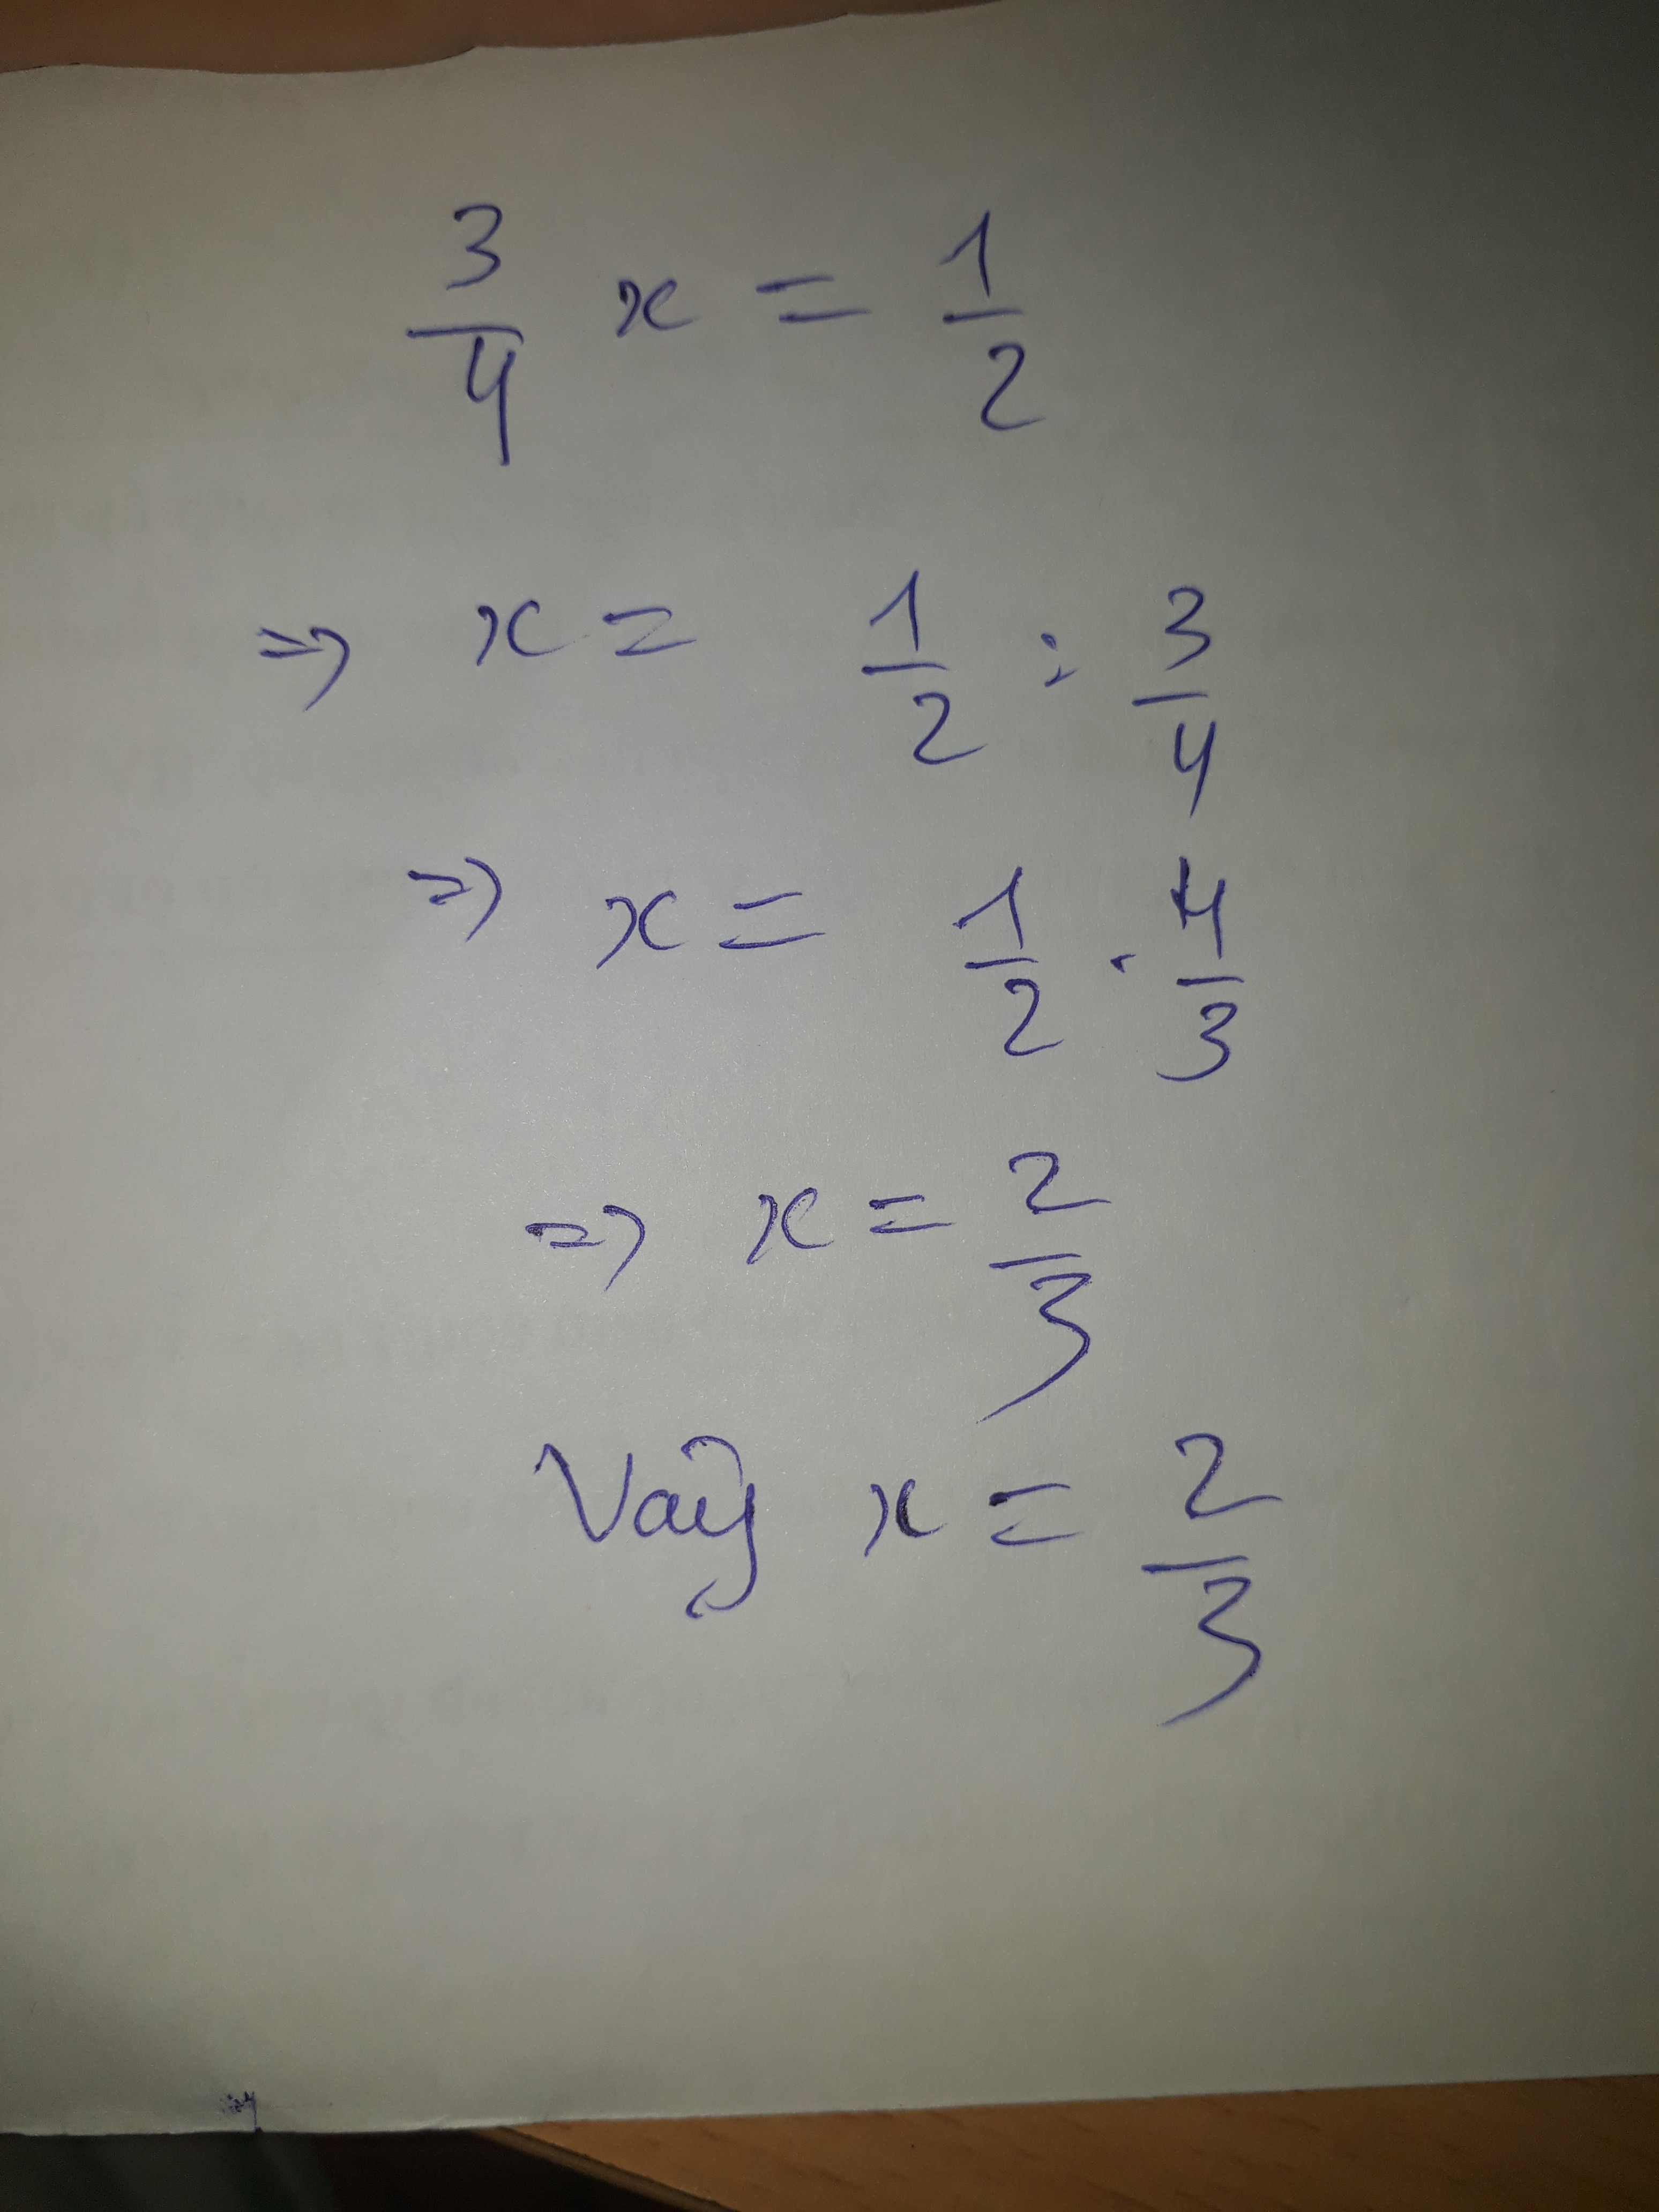 3/4 x = 1/2
=> x = 1/2 : 3/4
=> x = 1/2 . 4/3
=> x = 2/3
Vậy x = 2/3